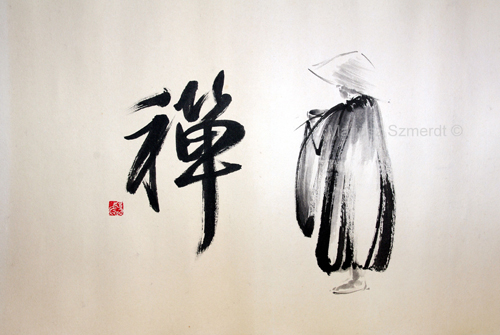 禪
Szmerdt ©